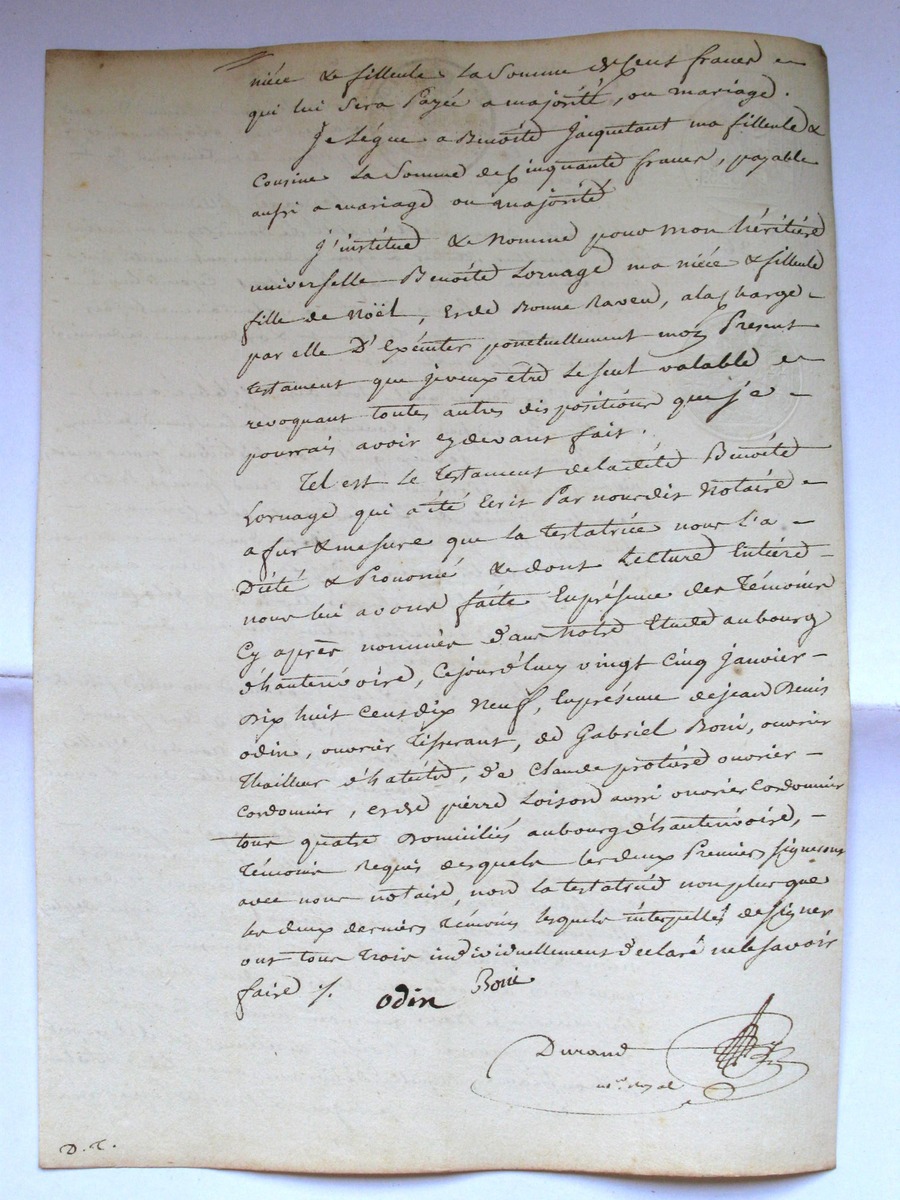 niéce & filleule la Somme de Cent francs
qui lui Sera Payée a majorité, ou mariage.
Je Légue a Benoîte Jacquetant ma filleule &
Cousine La Somme de Cinquante francs, payable
aussi a mariage ou majorité
J'institue & Nomme pour mon héritière
universelle Benoîte Lornage ma niéce & filleule
fille de Noël, et de Bonne Raven, a la Charge
par elle D'Exécuter ponctuellement mon Présent
testament que je veux etre Le Seul valable
revoquant toutes autres dispositions que je
pourrais avoir cy devant fait.
Tel est Le Testament de la dite Benoîte
Lornage qui a été Ecrit Par nous dit Notaire
a fur & mesure que la testatrice nous L'a
Dicté & Prononcé & dont Lecture Entière
nous lui avons faite En présence des Témoins
Cy après nommés dans Notre Etude au bourg
d'hauterivoire, Ce jourd'huy vingt cinq Janvier
Dix huit Cent dix Neuf, En présence de jean Denis
odin, ouvrier Tisserant, de Gabriel Boni, ouvrier
Thailleur d'habits, de Claude protière ouvrier
Cordonnier, et de pierre Loison aussi ouvrier Cordonnier
tous quatre Domiciliés au bourg d'hauterivoire,
Témoins Requis desquels les deux Premiers Signeront
avec nous notaire, non la testatrice non plus que
les deux derniers Témoins lesquels interpellés de Signer
ont tous Trois individuellement déclaré ne le Savoir
faire ./.
odin Boni
Durand
D. T.